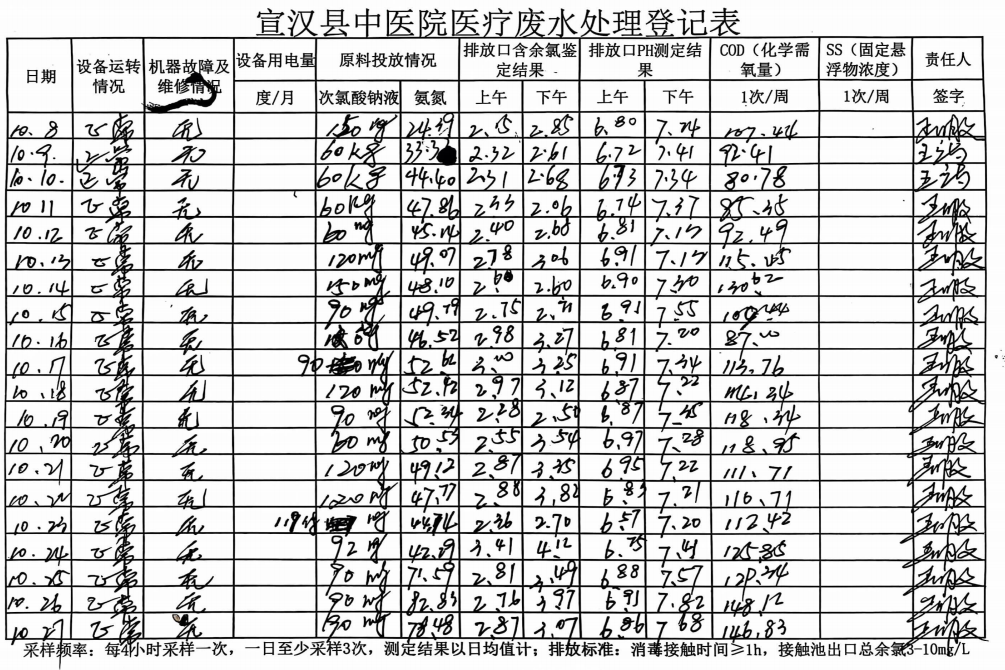 宣汉县中医院医疗废水处理登记表
日期 设备运转情况 机器故障及维修情况 设备用电量 度/月 原料投放情况 次氯酸钠液 氨氮 排放口含余氯鉴定结果 上午 下午 排放口PH测定结果 上午 下午 COD（化学需氧量） 1次/周 SS（固定悬浮物浓度） 1次/周 责任人 签字
10.8 正常 无 24.39 2.75 2.85 6.80 7.24 107.44
10.9 正常 无 60kg 2.32 2.61 6.72 7.41 92.41
10.10. 正常 无 60kg 44.40 2.31 2.68 6.73 7.34 80.78
10.11 正常 无 60kg 47.86 2.33 2.06 6.74 7.37 85.35
10.12 正常 无 60mg 45.14 2.40 2.68 6.81 7.13 92.49
10.13 正常 无 120mg 49.07 2.78 3.06 6.91 7.13 115.45
10.14 正常 无 150mg 48.10 2.60 6.90 7.30 130.62
10.15 正常 无 90mg 49.79 2.75 6.91 7.55
10.16 正常 无 46.52 2.98 3.27 6.81 7.20 87.00
10.17 正常 无 90 mg 52.62 3.00 3.25 6.91 7.34 113.76
10.18 正常 无 120mg 52.92 2.97 3.12 6.87 7.22
10.19 正常 无 90mg 52.34 2.28 2.50 6.87 7.35 118.34
10.20 正常 无 60mg 50.53 2.55 3.54 6.97 7.28 118.95
10.21 正常 无 120mg 49.12 2.87 3.35 6.95 7.22 111.71
10.22 正常 无 120mg 47.77 2.88 3.82 6.83 7.21 110.71
10.23 正常 无 mg 44.74 2.36 2.70 6.57 7.20 112.42
10.24 正常 无 92mg 42.29 3.41 4.12 6.75 7.41 125.85
10.25 正常 无 90mg 71.59 2.81 3.49 6.88 7.57 129.34
10.26 正常 无 90mg 82.83 2.76 3.97 6.91 7.82 148.12
10.27 正常 无 90mg 78.48 2.87 3.07 6.86 7.68 146.83
采样频率：每4小时采样一次，一日至少采样3次，测定结果以日均值计；排放标准：消毒接触时间≥1h，接触池出口总余氯3-10mg/L